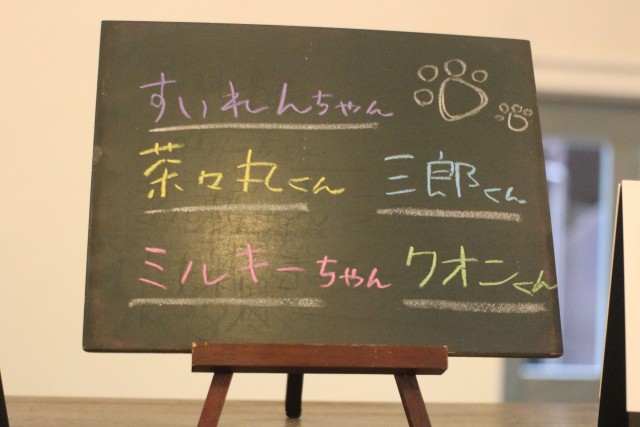 すいれんちゃん
茶々丸くん 三郎くん
ミルキーちゃん クオンくん